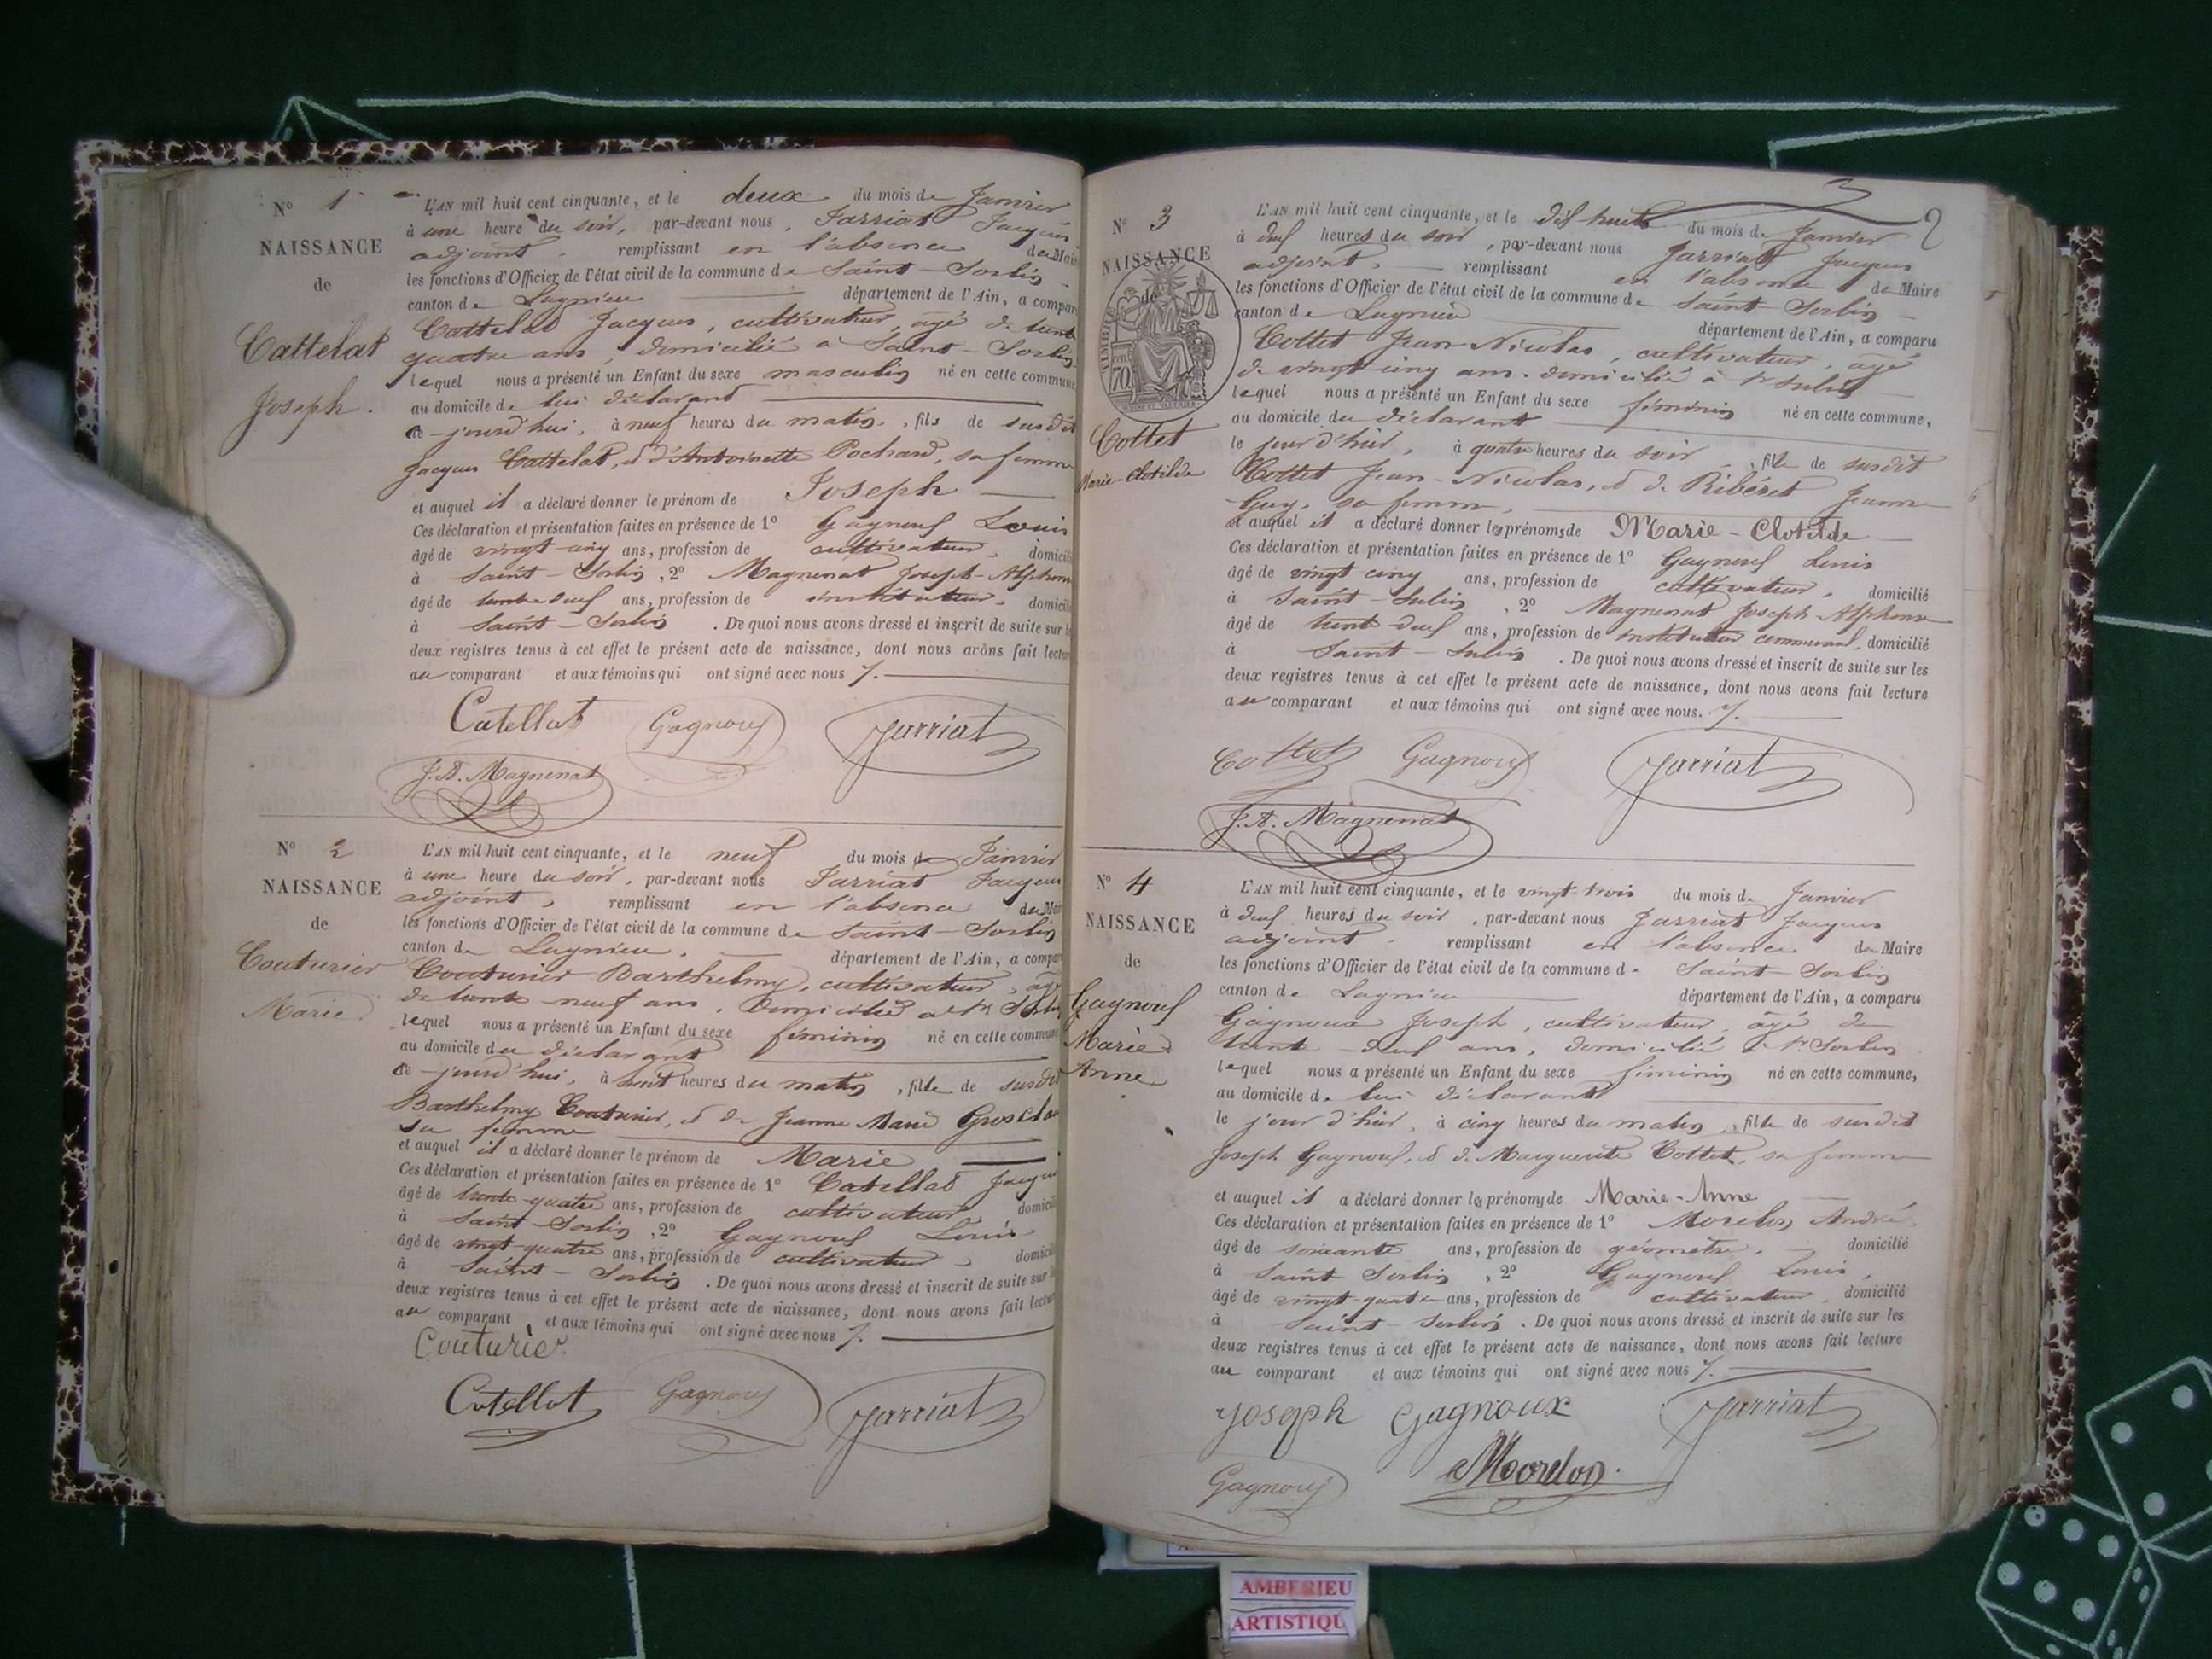 N° 1
NAISSANCE
de
Cattelat
Joseph.
L'AN mil huit cent cinquante, et le deux du mois de Janvier
à une heure du soir, par-devant nous, Jarriat Jacques
adjoint, remplissant en l'absence du Mai
les fonctions d'Officier de l'état civil de la commune de Saint-Sorlin
canton de Lagnieu département de l'Ain, a compar
Cattelat Jacques, cultivateur, âgé de trente
quatre ans, domicilié à Saint-Sorlin
lequel nous a présenté un Enfant du sexe masculin né en cette commune
au domicile de lui déclarant
ce-jourd'hui, à neuf heures du matin, fils de susdit
Jacques Cattelat, et d'Antoinette Pochard, sa femme
et auquel il a déclaré donner le prénom de Joseph
Ces déclaration et présentation faites en présence de 1° Gagnoux Louis
âgé de vingt-cinq ans, profession de cultivateur, domicili
à Saint-Sorlin, 2° Magnenat Joseph-Alphons
âgé de trente-deux ans, profession de instituteur, domicili
à Saint-Sorlin. De quoi nous avons dressé et inscrit de suite sur le
deux registres tenus à cet effet le présent acte de naissance, dont nous avons fait lectur
au comparant et aux témoins qui ont signé avec nous
Catellat Gagnoux Jarriat
J. A. Magnenat
N° 2
NAISSANCE
de
Couturier
Marie
L'AN mil huit cent cinquante, et le neuf du mois de Janvier
à une heure du soir, par-devant nous Jarriat Jacques
adjoint, remplissant en l'absence du Mai
les fonctions d'Officier de l'état civil de la commune de Saint-Sorlin
canton de Lagnieu, département de l'Ain, a compar
Couturier Barthelmy, cultivateur, âgé
de trente-neuf ans, domicilié à St Sorlin
lequel nous a présenté un Enfant du sexe féminin né en cette commune
au domicile du déclarant
ce-jourd'hui, à huit heures du matin, fille de susdit
Barthelmy Couturier, et de Jeanne Marie Grosclau
sa femme
et auquel il a déclaré donner le prénom de Marie
Ces déclaration et présentation faites en présence de 1° Catellat Jacque
âgé de trente-quatre ans, profession de cultivateur domicili
à Saint-Sorlin, 2° Gagnoux Louis
âgé de vingt-quatre ans, profession de cultivateur, domicili
à Saint-Sorlin. De quoi nous avons dressé et inscrit de suite sur le
deux registres tenus à cet effet le présent acte de naissance, dont nous avons fait lectur
au comparant et aux témoins qui ont signé avec nous
Couturier
Catellat Gagnoux Jarriat
2
N° 3
NAISSANCE
de
Cottet
Marie-Clotilde
L'AN mil huit cent cinquante, et le dix huit du mois de Janvier
à deux heures du soir, par-devant nous Jarriat Jacques
adjoint, remplissant en l'absence du Maire
les fonctions d'Officier de l'état civil de la commune de Saint-Sorlin
canton de Lagnieu département de l'Ain, a comparu
Cottet Jean Nicolas, cultivateur, âgé
de vingt cinq ans, domicilié à St Sorlin
lequel nous a présenté un Enfant du sexe féminin né en cette commune,
au domicile du déclarant
le jour d'hier, à quatre heures du soir, fille de susdit
Cottet Jean-Nicolas, et de Ribéret Jeanne
Guy, sa femme,
et auquel il a déclaré donner les prénoms de Marie-Clotilde
Ces déclaration et présentation faites en présence de 1° Gagnoux Louis
âgé de vingt cinq ans, profession de cultivateur, domicilié
à Saint-Sorlin, 2° Magnenat Joseph Alphonse
âgé de trente-deux ans, profession de instituteur communal, domicilié
à Saint-Sorlin. De quoi nous avons dressé et inscrit de suite sur les
deux registres tenus à cet effet le présent acte de naissance, dont nous avons fait lecture
au comparant et aux témoins qui ont signé avec nous.
Cottet Gagnoux Jarriat
J. A. Magnenat
N° 4
NAISSANCE
de
Gagnoux
Marie
Anne
L'AN mil huit cent cinquante, et le vingt-trois du mois de Janvier
à deux heures du soir, par-devant nous Jarriat Jacques
adjoint, remplissant en l'absence du Maire
les fonctions d'Officier de l'état civil de la commune de Saint-Sorlin
canton de Lagnieu département de l'Ain, a comparu
Gagnoux Joseph, cultivateur, âgé de
trente-deux ans, domicilié à St Sorlin
lequel nous a présenté un Enfant du sexe féminin né en cette commune,
au domicile de lui déclarant
le jour d'hier, à cinq heures du matin, fille de susdit
Joseph Gagnoux, et de Marguerite Cottet, sa femme
et auquel il a déclaré donner les prénoms de Marie-Anne
Ces déclaration et présentation faites en présence de 1° Morelon André
âgé de soixante ans, profession de géomètre, domicilié
à Saint Sorlin, 2° Gagnoux Louis,
âgé de vingt quatre ans, profession de cultivateur, domicilié
à Saint-Sorlin. De quoi nous avons dressé et inscrit de suite sur les
deux registres tenus à cet effet le présent acte de naissance, dont nous avons fait lecture
au comparant et aux témoins qui ont signé avec nous
Joseph Gagnoux Jarriat
Gagnoux Morelon
AMBERIEU
ARTISTIQU